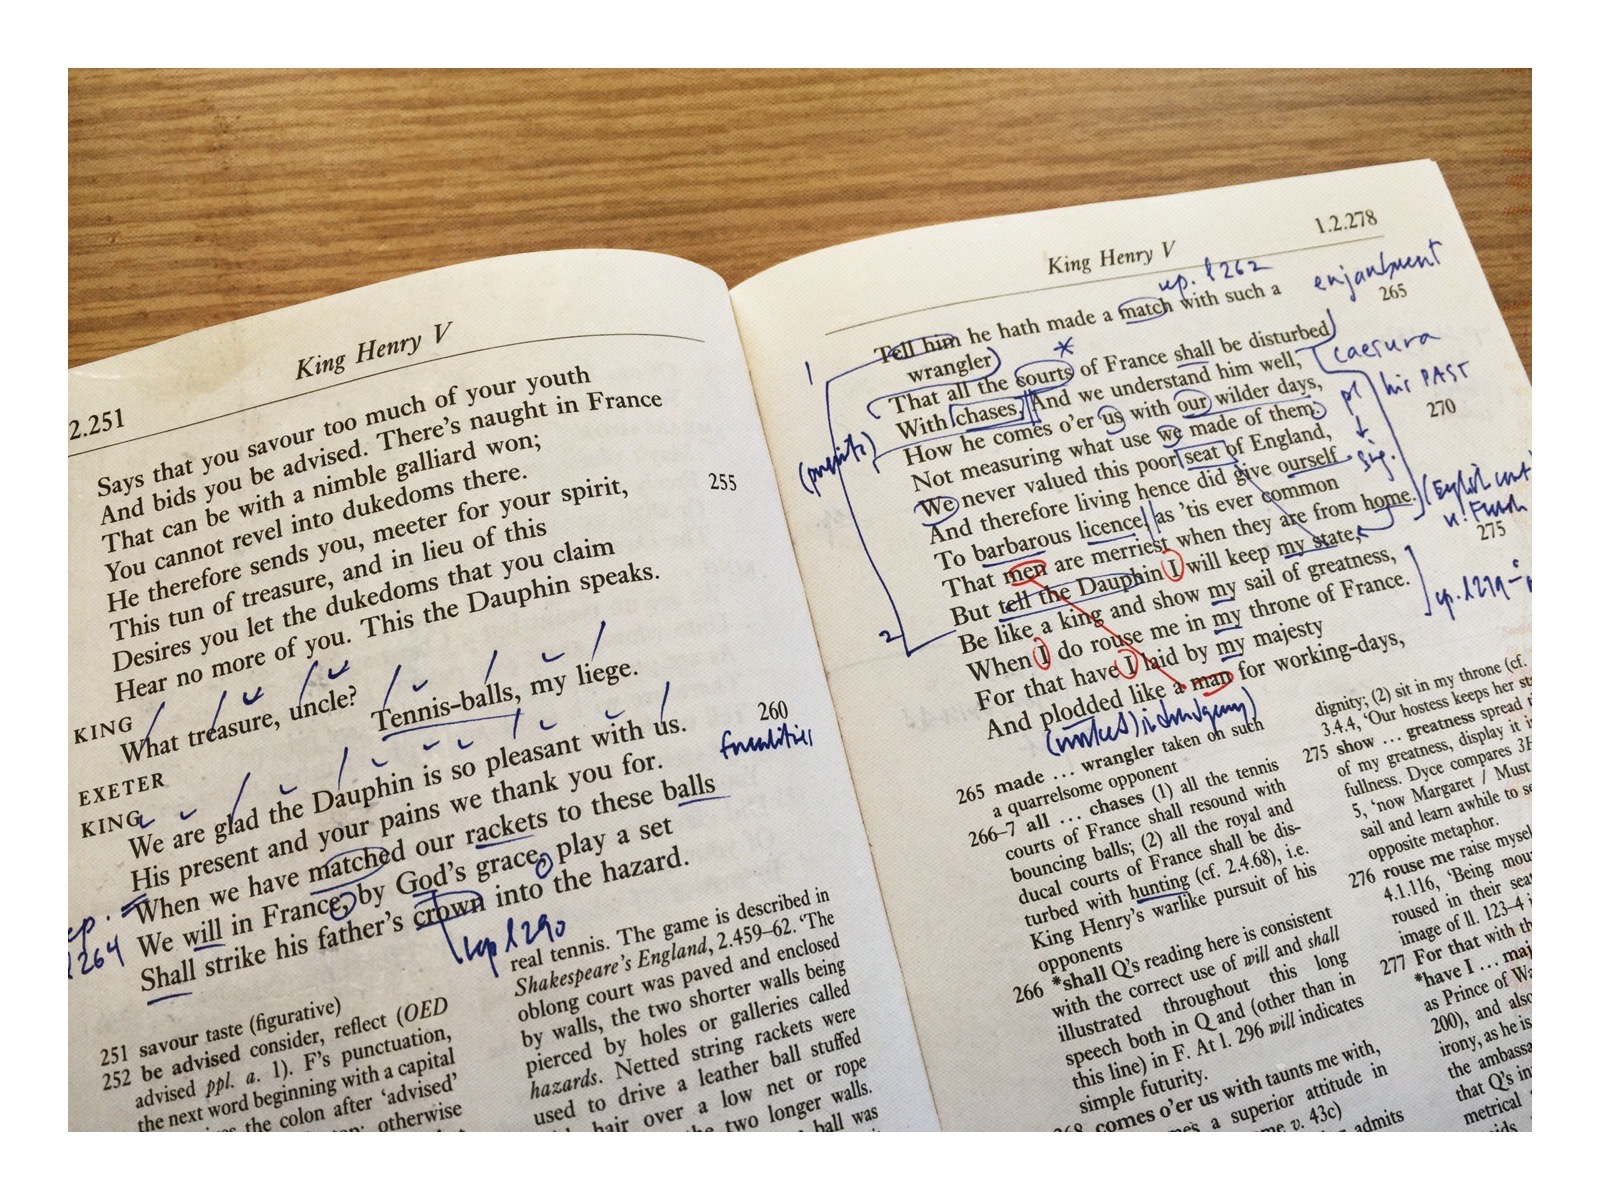 King Henry V
2.251
Says that you savour too much of your youth
And bids you be advised. There's naught in France
That can be with a nimble galliard won;
You cannot revel into dukedoms there.
He therefore sends you, meeter for your spirit, 255
This tun of treasure, and in lieu of this
Desires you let the dukedoms that you claim
Hear no more of you. This the Dauphin speaks.
KING
What treasure, uncle?
EXETER
Tennis-balls, my liege.
KING
We are glad the Dauphin is so pleasant with us. 260
His present and your pains we thank you for.
When we have matched our rackets to these balls
We will in France, by God's grace, play a set
Shall strike his father's crown into the hazard.
l 264
cp l 290
251 savour taste (figurative)
252 be advised consider, reflect (OED
advised ppl. a. 1). F's punctuation,
the next word beginning with a capital
the colon after 'advised'
otherwise
real tennis. The game is described in
Shakespeare's England, 2.459–62. 'The
oblong court was paved and enclosed
by walls, the two shorter walls being
pierced by holes or galleries called
hazards. Netted string rackets were
used to drive a leather ball stuffed
hair over a low net or rope
the two longer walls.
ball was
King Henry V
1.2.278
cp. l 262
enjambment
Tell him he hath made a match with such a 265
wrangler
That all the courts of France shall be disturbed
With chases. And we understand him well,
How he comes o'er us with our wilder days,
Not measuring what use we made of them.
We never valued this poor seat of England, 270
And therefore living hence did give ourself
To barbarous licence, as 'tis ever common
That men are merriest when they are from home.
But tell the Dauphin I will keep my state,
Be like a king and show my sail of greatness, 275
When I do rouse me in my throne of France.
For that have I laid by my majesty
And plodded like a man for working-days,
1
2
caesura
his PAST
pl
sing.
265 made ... wrangler taken on such
a quarrelsome opponent
266–7 all ... chases (1) all the tennis
courts of France shall resound with
bouncing balls; (2) all the royal and
ducal courts of France shall be dis-
turbed with hunting (cf. 2.4.68), i.e.
King Henry's warlike pursuit of his
opponents
266 *shall Q's reading here is consistent
with the correct use of will and shall
illustrated throughout this long
speech both in Q and (other than in
this line) in F. At l. 296 will indicates
simple futurity.
268 comes o'er us with taunts me with,
a superior attitude in
v. 43c)
admits
dignity; (2) sit in my throne (cf.
3.4.4, 'Our hostess keeps her
275 show ... greatness spread
of my greatness, display it
fullness. Dyce compares
5, 'now Margaret / Must
sail and learn awhile to
opposite metaphor.
276 rouse me raise
4.1.116, 'Being
roused in their
image of ll. 123–4
277 For that with
*have I ...
as Prince of
200), and also
irony, as he is
the
that Q's
metrical